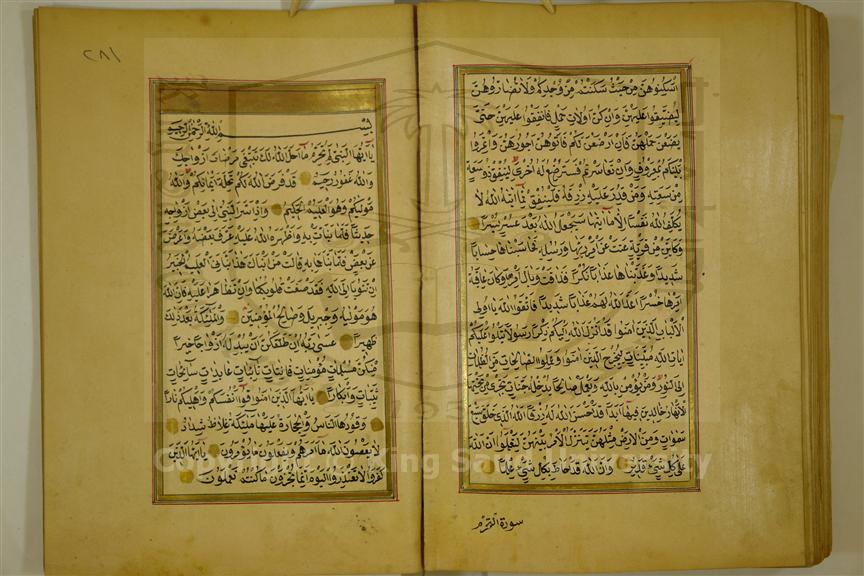 اسكنوهن من حيث سكنتم من وجدكم ولا تضاروهن
لتضيقوا عليهن وان كن اولات حمل فانفقوا عليهن حتى
يضعن حملهن فان ارضعن لكم فاتوهن اجورهن واتمروا
بينكم بمعروف وان تعاسرتم فسترضع له اخرى لينفق ذو سعة
من سعته ومن قدر عليه رزقه فلينفق مما اتيه الله لا
يكلف الله نفسا الا ما اتيها سيجعل الله بعد عسر يسرا
وكاين من قرية عتت عن امر ربها ورسله فحاسبناها حسابا
شديدا وعذبناها عذابا نكرا فذاقت وبال امرها وكان عاقبة
امرها خسرا اعد الله لهم عذابا شديدا فاتقوا الله يا اولى
الالباب الذين امنوا قد انزل الله اليكم ذكرا رسولا يتلوا عليكم
ايات الله مبينات ليخرج الذين امنوا وعملوا الصالحات من الظلمات
الى النور ومن يؤمن بالله ويعمل صالحا يدخله جنات تجرى من تحتها
الانهار خالدين فيها ابدا قد احسن الله له رزقا الله الذى خلق سبع
سموات ومن الارض مثلهن يتنزل الامر بينهن لتعلموا ان الله
على كل شئ قدير وان الله قد احاط بكل شئ علما
سورة التحريم
٢٨١
بسم الله الرحمن الرحيم
يا ايها النبى لم تحرم ما احل الله لك تبتغى مرضات ازواجك
والله غفور رحيم قد فرض الله لكم تحلة ايمانكم والله
موليكم وهو العليم الحكيم واذ اسر النبى الى بعض ازواجه
حديثا فلما نبات به واظهره الله عليه عرف بعضه واعرض
عن بعض فلما نباها به قالت من انباك هذا قال نبانى العليم الخبير
ان تتوبا الى الله فقد صغت قلوبكما وان تظاهرا عليه فان الله
هو موليه وجبريل وصالح المؤمنين والملئكة بعد ذلك
ظهيرا عسى ربه ان طلقكن ان يبدله ازواجا خيرا
منكن مسلمات مؤمنات قانتات تائبات عابدات سائحات
ثيبات وابكارا يا ايها الذين امنوا قوا انفسكم واهليكم نارا
وقودها الناس والحجارة عليها ملئكة غلاظ شداد
لا يعصون الله ما امرهم ويفعلون ما يؤمرون يا ايها الذين
كفروا لا تعتذروا اليوم انما تجزون ما كنتم تعملون
Copyright © King Saud University